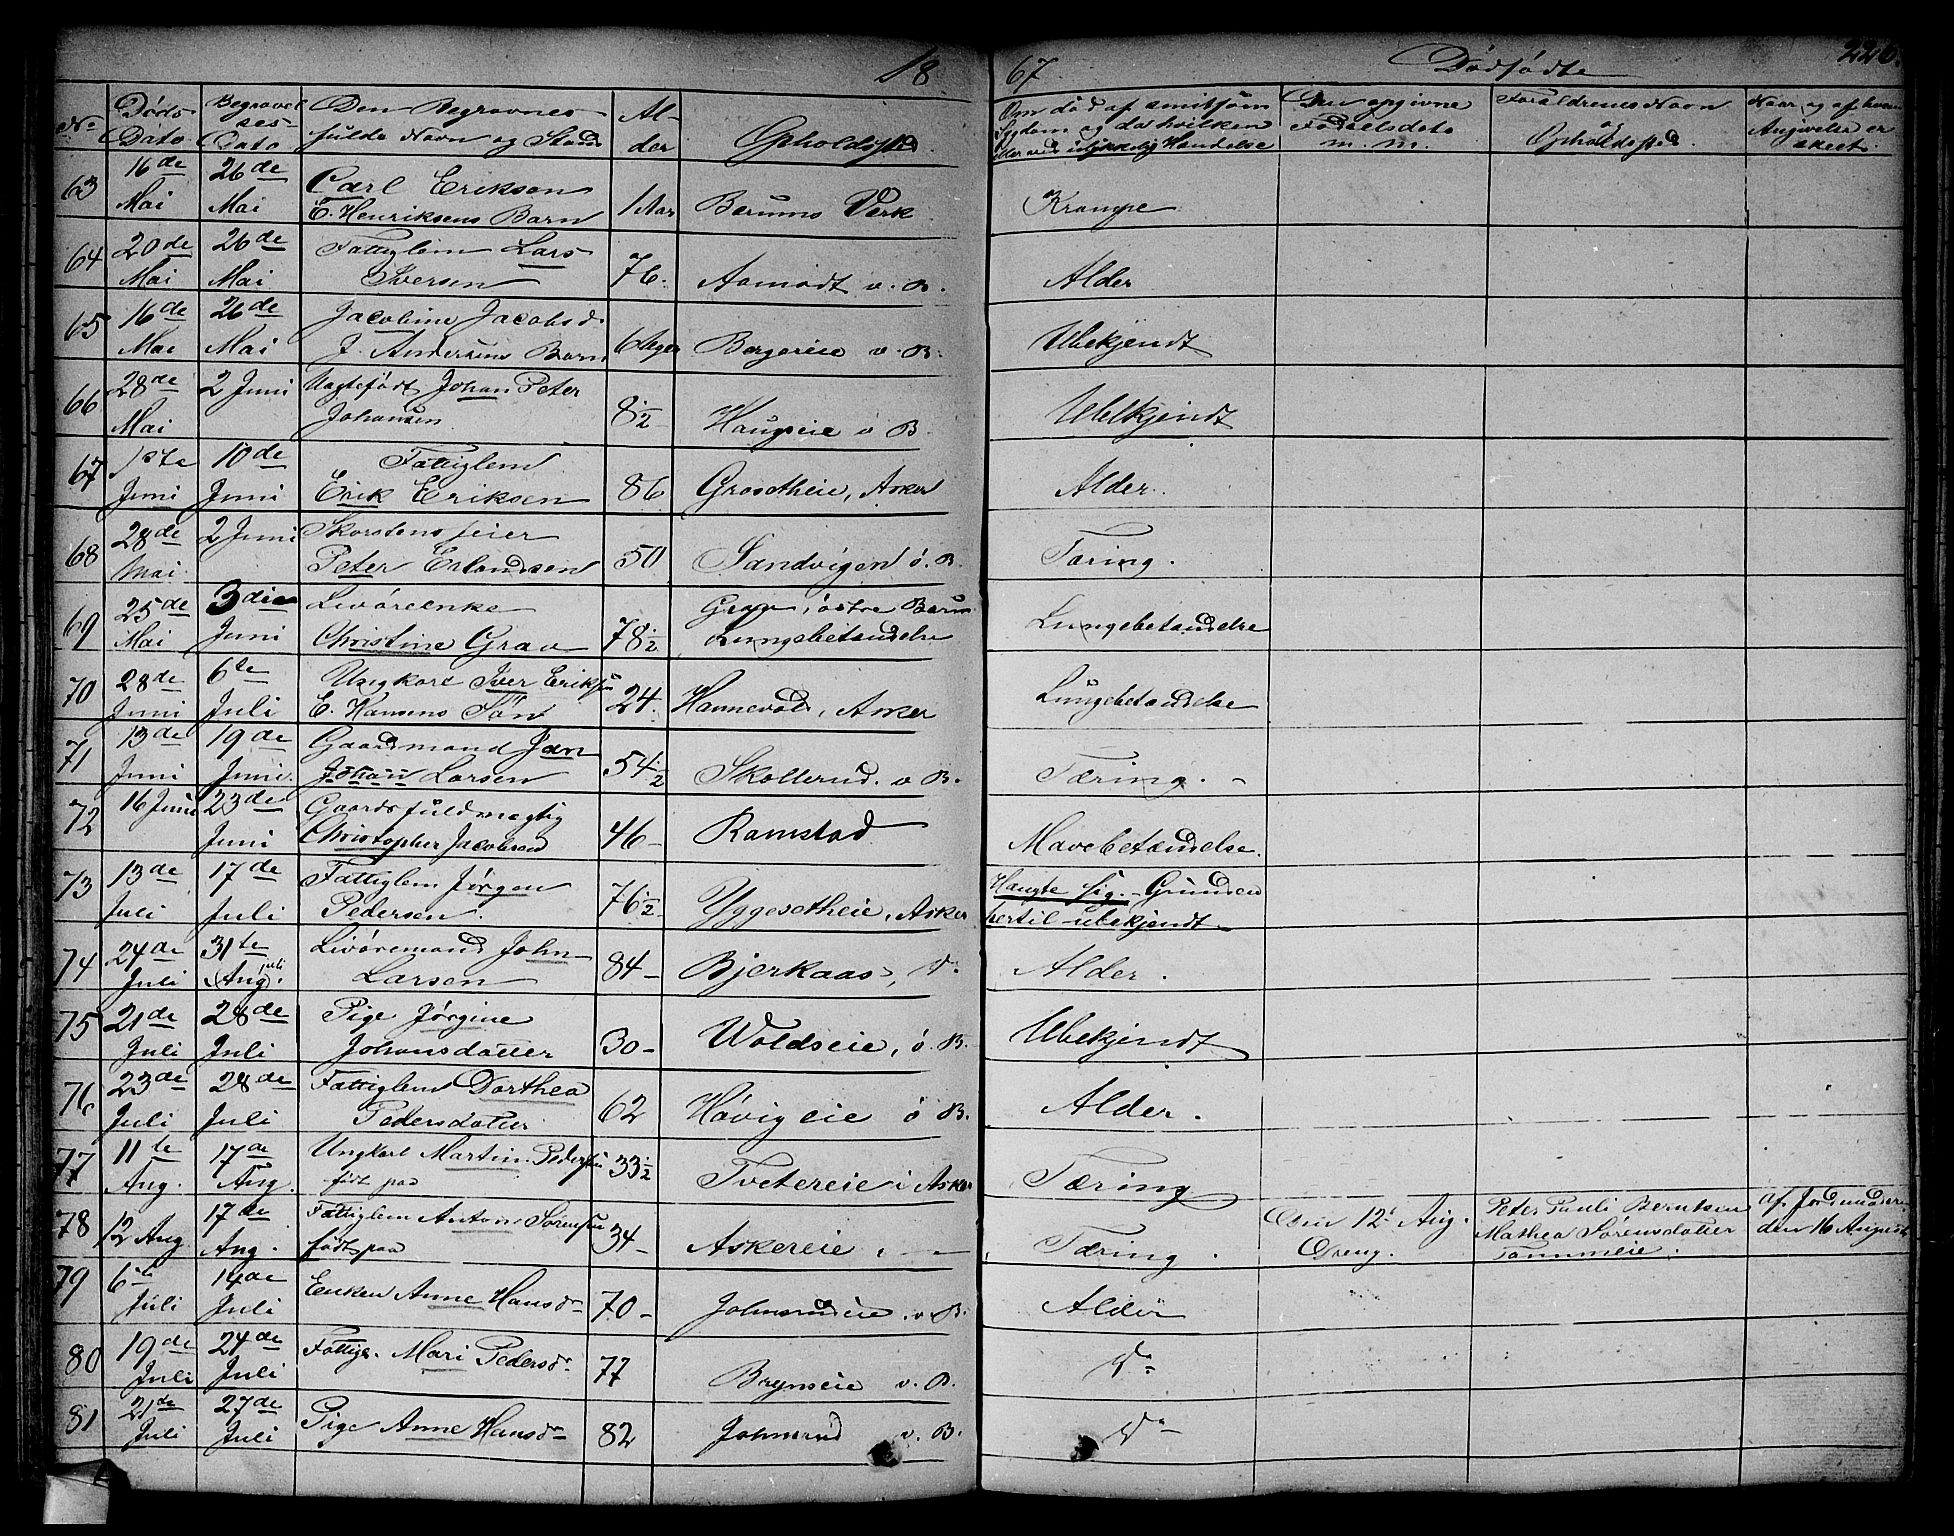 18 67 Dødfødte 226.
No Døds Dato Begravelses Dato Den Begravnes fulde Navn og Stand Alder Opholdssted Om død af smitsom Sygdom og da hvilken eller ved ulykkelig Hændelse Den opgivne Fødselsdato m. m. Forældrenes Navn og Opholdssted Naar og af hvem Angivelse er skeet.
63 16de Mai 26de Mai Carl Eriksen E. Henriksens Barn 1 Aar Bærums Verk Krampe
64 20de Mai 26de Mai Fattiglem Lars Iversen 76. Aamodt v. B. Alder
65 16de Mai 26de Mai Jacobine Jacobsd. J. Andersens Barn 6 Uger Bergereie v. B. Ubekjendt
66 28de Mai 2 Juni Uægtefødt Johan Peter Johansen 8 1/2 Haugseie v B. Ubekjendt
67 1ste Juni 10de Juni Fattiglem Erik Eriksen 86 Grosetheie, Asker Alder.
68 28de Mai 2 Juni Skorstensfeier Peter Erlandsen 50 Sandvigen ö. B. Tæring.
69 25de Mai 3die Juni Livöreenke Christine Grav 78 1/2 Grav, östre Bærum Lungebetændelse Lungebetændelse
70 28de Juni 6te Juli Ungkarl Iver Eriksen E. Hansens Sön 24. Hannevold, Asker Lungebetændelse
71 13de Juni 19de Juni. Gaardmand Jan Johan Larsen 54 1/2 Skollerud. v B. Tæring. -
72 16 Juni 23de Juni Gaardsfuldmægtig Christopher Jacobsen 46 - Ramstad Mavebetændelse.
73 13de Juli 17de Juli Fattiglem Jörgen Pedersen. 76 1/2 Yggesetheie, Asker Hængte sig. - Grunden hertil ubekjendt -
74 24de Juli 31te Aug. Juli Livöremand John Larsen 84 - Bjerkaas, Do Alder.
75 21de Juli 28de Juli Pige Jörgine Johansdatter 30 - Woldseie, ö. B. Ubekjendt
76 23de Juli 28de Juli Fattiglem Dorthea Pedersdatter 62 Hövigeie ö B. Alder.
77 11te Aug. 17de Aug. Ungkarl Martin Pedersen født paa 33 1/2 Tvetereie i Asker Tæring
78 12 Aug 17de Aug. Fattiglem Anton Sörensen født paa 34 - Askereie i - Tæring. Den 12' Aug. Dreng. Peter Pauli Berntsen Mathea Sörensdatter Tammeie. af Jordmoderen den 16 August
79 6te Juli 14de Juli Enken Anne Hansdr 70 - Johnsrudeie. v B. Alder
80 19de Juli 24de Juli Fattigl. Mari Pedersdr 77 Brynseie v. B. Do
81 21de Juli 27de Juli Pige Anne Hansdr 82 Johnsrud v. B. Do